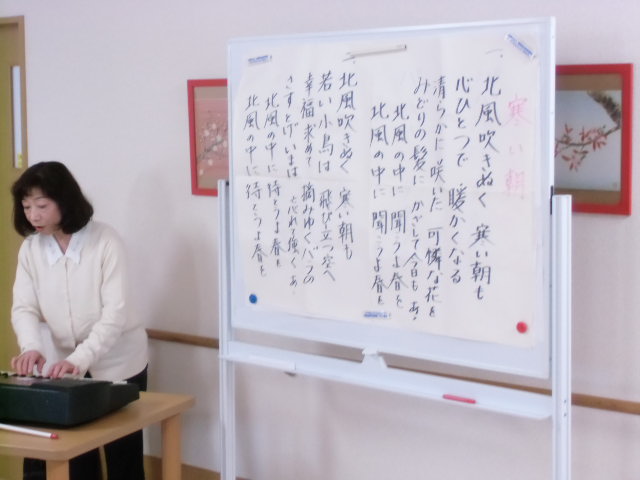 寒い朝
一、北風吹きぬく 寒い朝も
心ひとつで 暖かくなる
清らかに 咲いた 可憐な花を
みどりの髪に かざして今日も あゝ
北風の中に 聞こうよ春を
北風の中に 聞こうよ春を
北風吹きぬく 寒い朝も
若い小鳥は 飛び立つ空へ
幸福求めて 摘みゆくバラの
さすとげいまは 忘れ強く あゝ
北風の中に 待とうよ春を
北風の中に 待とうよ春を